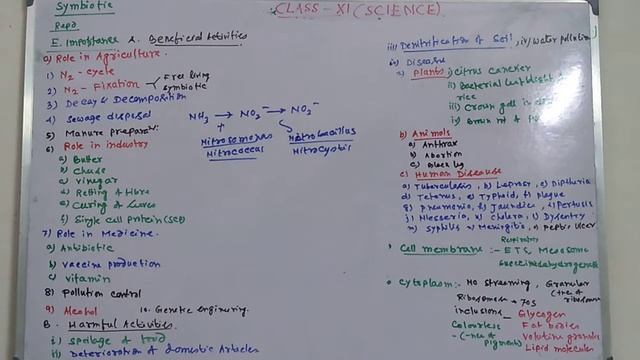 Symbiotic
CLASS - XI (SCIENCE)
E. Importance A. Beneficial Activities
a) Role in Agriculture.
1) N2 - cycle
2) N2 - Fixation
Free living
Symbiotic
3) Decay & Decomposition
4) Sewage disposal
5) Manure preparatn.
6) Role in industry
a) Butter
b) Chese
c) vinegar
d) Retting of fibre
e) Curing of
f) Single cell protein (SCP)
7) Role in Medicine.
a) Antibiotic
b) vaccine production
c) vitamin
8) Pollution control
9) Alcohol 10. Genetic engineering.
B. Harmful Activities.
i) Spoilage of food
ii) Deterioration of domestic Articles
NH3 → NO2⁻ → NO2⁻
Nitrosomonas
Nitrococcus
Nitrobacillus
Nitrocystis
iii) Denitrification of Soil, iv) water pollution
v) Disease
a) Plants,- i) citrus cancker
ii) Bacterial
rice
iii) Crown gall
iv) Brown rot of
b) Animals
a) Anthrax
b) Abortion
c) Black leg
c) Human Disease
a) Tuberculosis, b) Leprosy, c) Diptheria
d) Tetanus, e) Typhoid, f) Plague
g) pneumonia, h) Jaundice, i) Pertusis
k) cholera, l) Dysentry
m) Syphlus n) Meningitis, o) Peptic Ulcer
Cell membrane :- Respiratory ETS, Mesosome
Succinic dehydrogenase
Cytoplasm :- No streaming, Granular
Ribosomes → 70S
inclusions - Glycogen
Colourless Fat bodies
Volutine granules
Lipid molecules